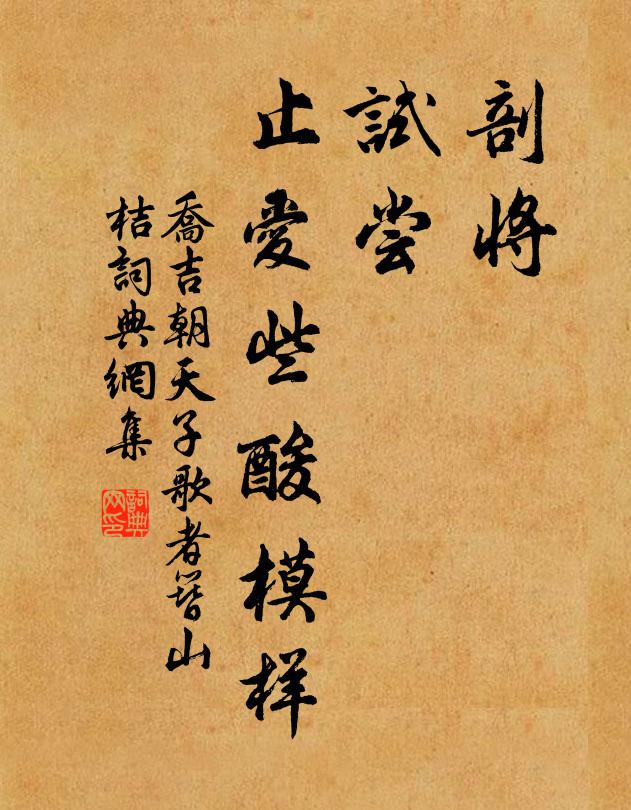 剖將
試尝
止愛些酸模样
喬吉朝天子歌者簪山
桔詞典網集
詞典
网印